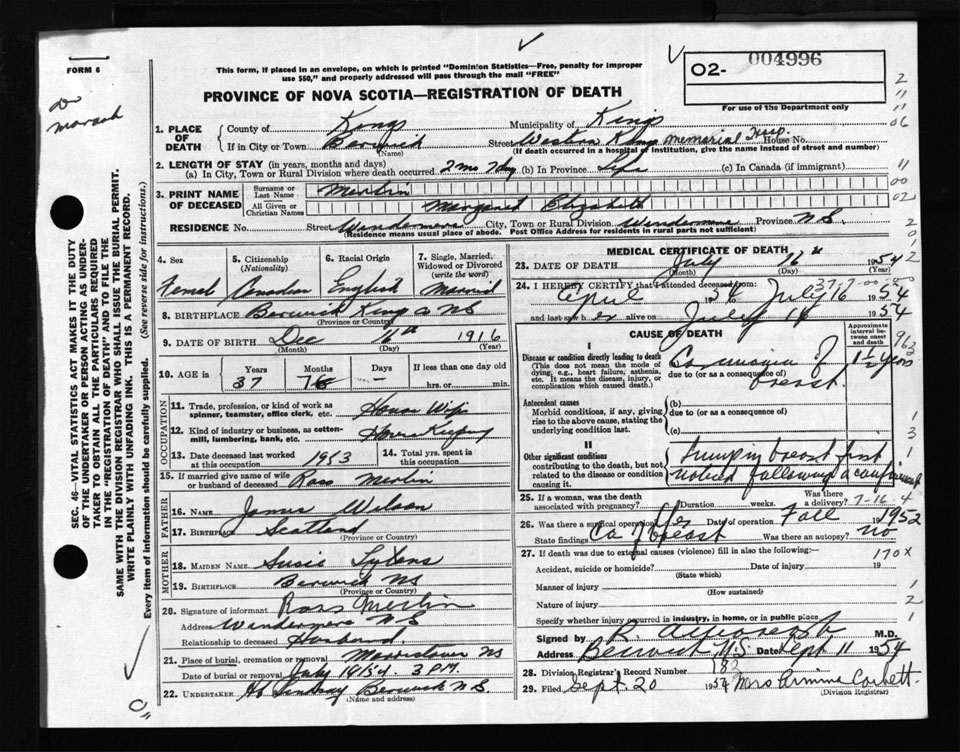 FORM 6
This form, if placed in an envelope, on which is printed "Dominion Statistics—Free, penalty for improper
use $50," and properly addressed will pass through the mail "FREE"
PROVINCE OF NOVA SCOTIA—REGISTRATION OF DEATH
O2- 004996
For use of the Department only
1. PLACE OF DEATH
County of Kings Municipality of Kings
If in City or Town Berwick Street Western Kings Memorial Hosp. House No.
(Name) (If death occurred in a hospital or institution, give the name instead of street and number)
2. LENGTH OF STAY (in years, months and days)
(a) In City, Town or Rural Division where death occurred 2 mo 7 day (b) In Province Life (c) In Canada (if immigrant)
3. PRINT NAME OF DECEASED
Surname or Last Name Merlin
All Given or Christian Names Margaret Elizabeth
RESIDENCE No. Street Windermere City, Town or Rural Division Windermere Province N.S.
(Residence means usual place of abode. Post Office Address for residents in rural parts not sufficient)
4. Sex Female
5. Citizenship (Nationality) Canadian
6. Racial Origin English
7. Single, Married, Widowed or Divorced (write the word) Married
8. BIRTHPLACE Berwick Kings Co NS
(Province or Country)
9. DATE OF BIRTH Dec 11th 1916
(Month) (Day) (Year)
10. AGE in Years 37 Months 7 Days - If less than one day old
hrs. or min.
OCCUPATION
11. Trade, profession, or kind of work as spinner, teamster, office clerk, etc. House Wife
12. Kind of industry or business, as cotton-mill, lumbering, bank, etc. House Keeping
13. Date deceased last worked at this occupation 1953
14. Total yrs. spent in this occupation
15. If married give name of wife or husband of deceased Ross Merlin
FATHER
16. NAME James Wilson
17. BIRTHPLACE Scotland
(Province or Country)
MOTHER
18. MAIDEN NAME Susie
19. BIRTHPLACE Berwick NS
(Province or Country)
20. Signature of informant Ross Merlin
Address Windermere N S
Relationship to deceased Husband
21. Place of burial, cremation or removal NS
Date of burial or removal July 19/54. 3 P.M.
22. UNDERTAKER Lindsay Berwick N.S.
(Name and address)
MEDICAL CERTIFICATE OF DEATH
23. DATE OF DEATH July 16th 1954
(Month) (Day) (Year)
24. I HEREBY CERTIFY that I attended deceased from:
April 1954 July 16 1954
and last saw her alive on July 1954
CAUSE OF DEATH
Approximate interval between onset and death
I
Disease or condition directly leading to death
(This does not mean the mode of dying, e.g., heart failure, asthenia, etc. It means the disease, injury, or complication which caused death.)
(a) Carcinoma of breast 1½ years
due to (or as a consequence of)
Antecedent causes
Morbid conditions, if any, giving rise to the above cause, stating the underlying condition last.
(b)
due to (or as a consequence of)
(c)
II
Other significant conditions
contributing to the death, but not related to the disease or condition causing it.
Lump in breast first
noticed following a confinement
25. If a woman, was the death associated with pregnancy? Duration weeks. Was there a delivery? 7-16-4
26. Was there a surgical operation? Yes Date of operation Fall 1952
State findings Ca of breast Was there an autopsy? no
27. If death was due to external causes (violence) fill in also the following:—
170 x
Accident, suicide or homicide? Date of injury 19
(State which)
Manner of injury
(How sustained)
Nature of injury
Specify whether injury occurred in industry, in home, or in public place
Signed by M.D.
Address Berwick N.S. Date Sept 11 1954
28. Division Registrar's Record Number 82
29. Filed Sept. 20 1954 Mrs Corbett.
(Division Registrar)
SEC. 46—VITAL STATISTICS ACT MAKES IT THE DUTY
OF THE UNDERTAKER OR PERSON ACTING AS UNDER-
TAKER TO OBTAIN ALL THE PARTICULARS REQUIRED
IN THE "REGISTRATION OF DEATH" AND TO FILE THE
SAME WITH THE DIVISION REGISTRAR WHO SHALL ISSUE THE BURIAL PERMIT.
WRITE PLAINLY WITH UNFADING INK. THIS IS A PERMANENT RECORD.
Every item of information should be carefully supplied. (See reverse side for instructions.)